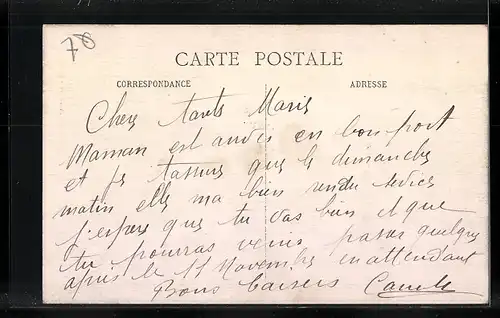 78
CARTE POSTALE
CORRESPONDANCE ADRESSE
Chere tante Marie
Maman est arrivé en bon port
et je t'assure que le dimanche
matin elle ma bien rendu service
j'espere que tu vas bien et que
tu pourras venir passer quelque
apres le 11 Novembre en attendant
Bons baisers